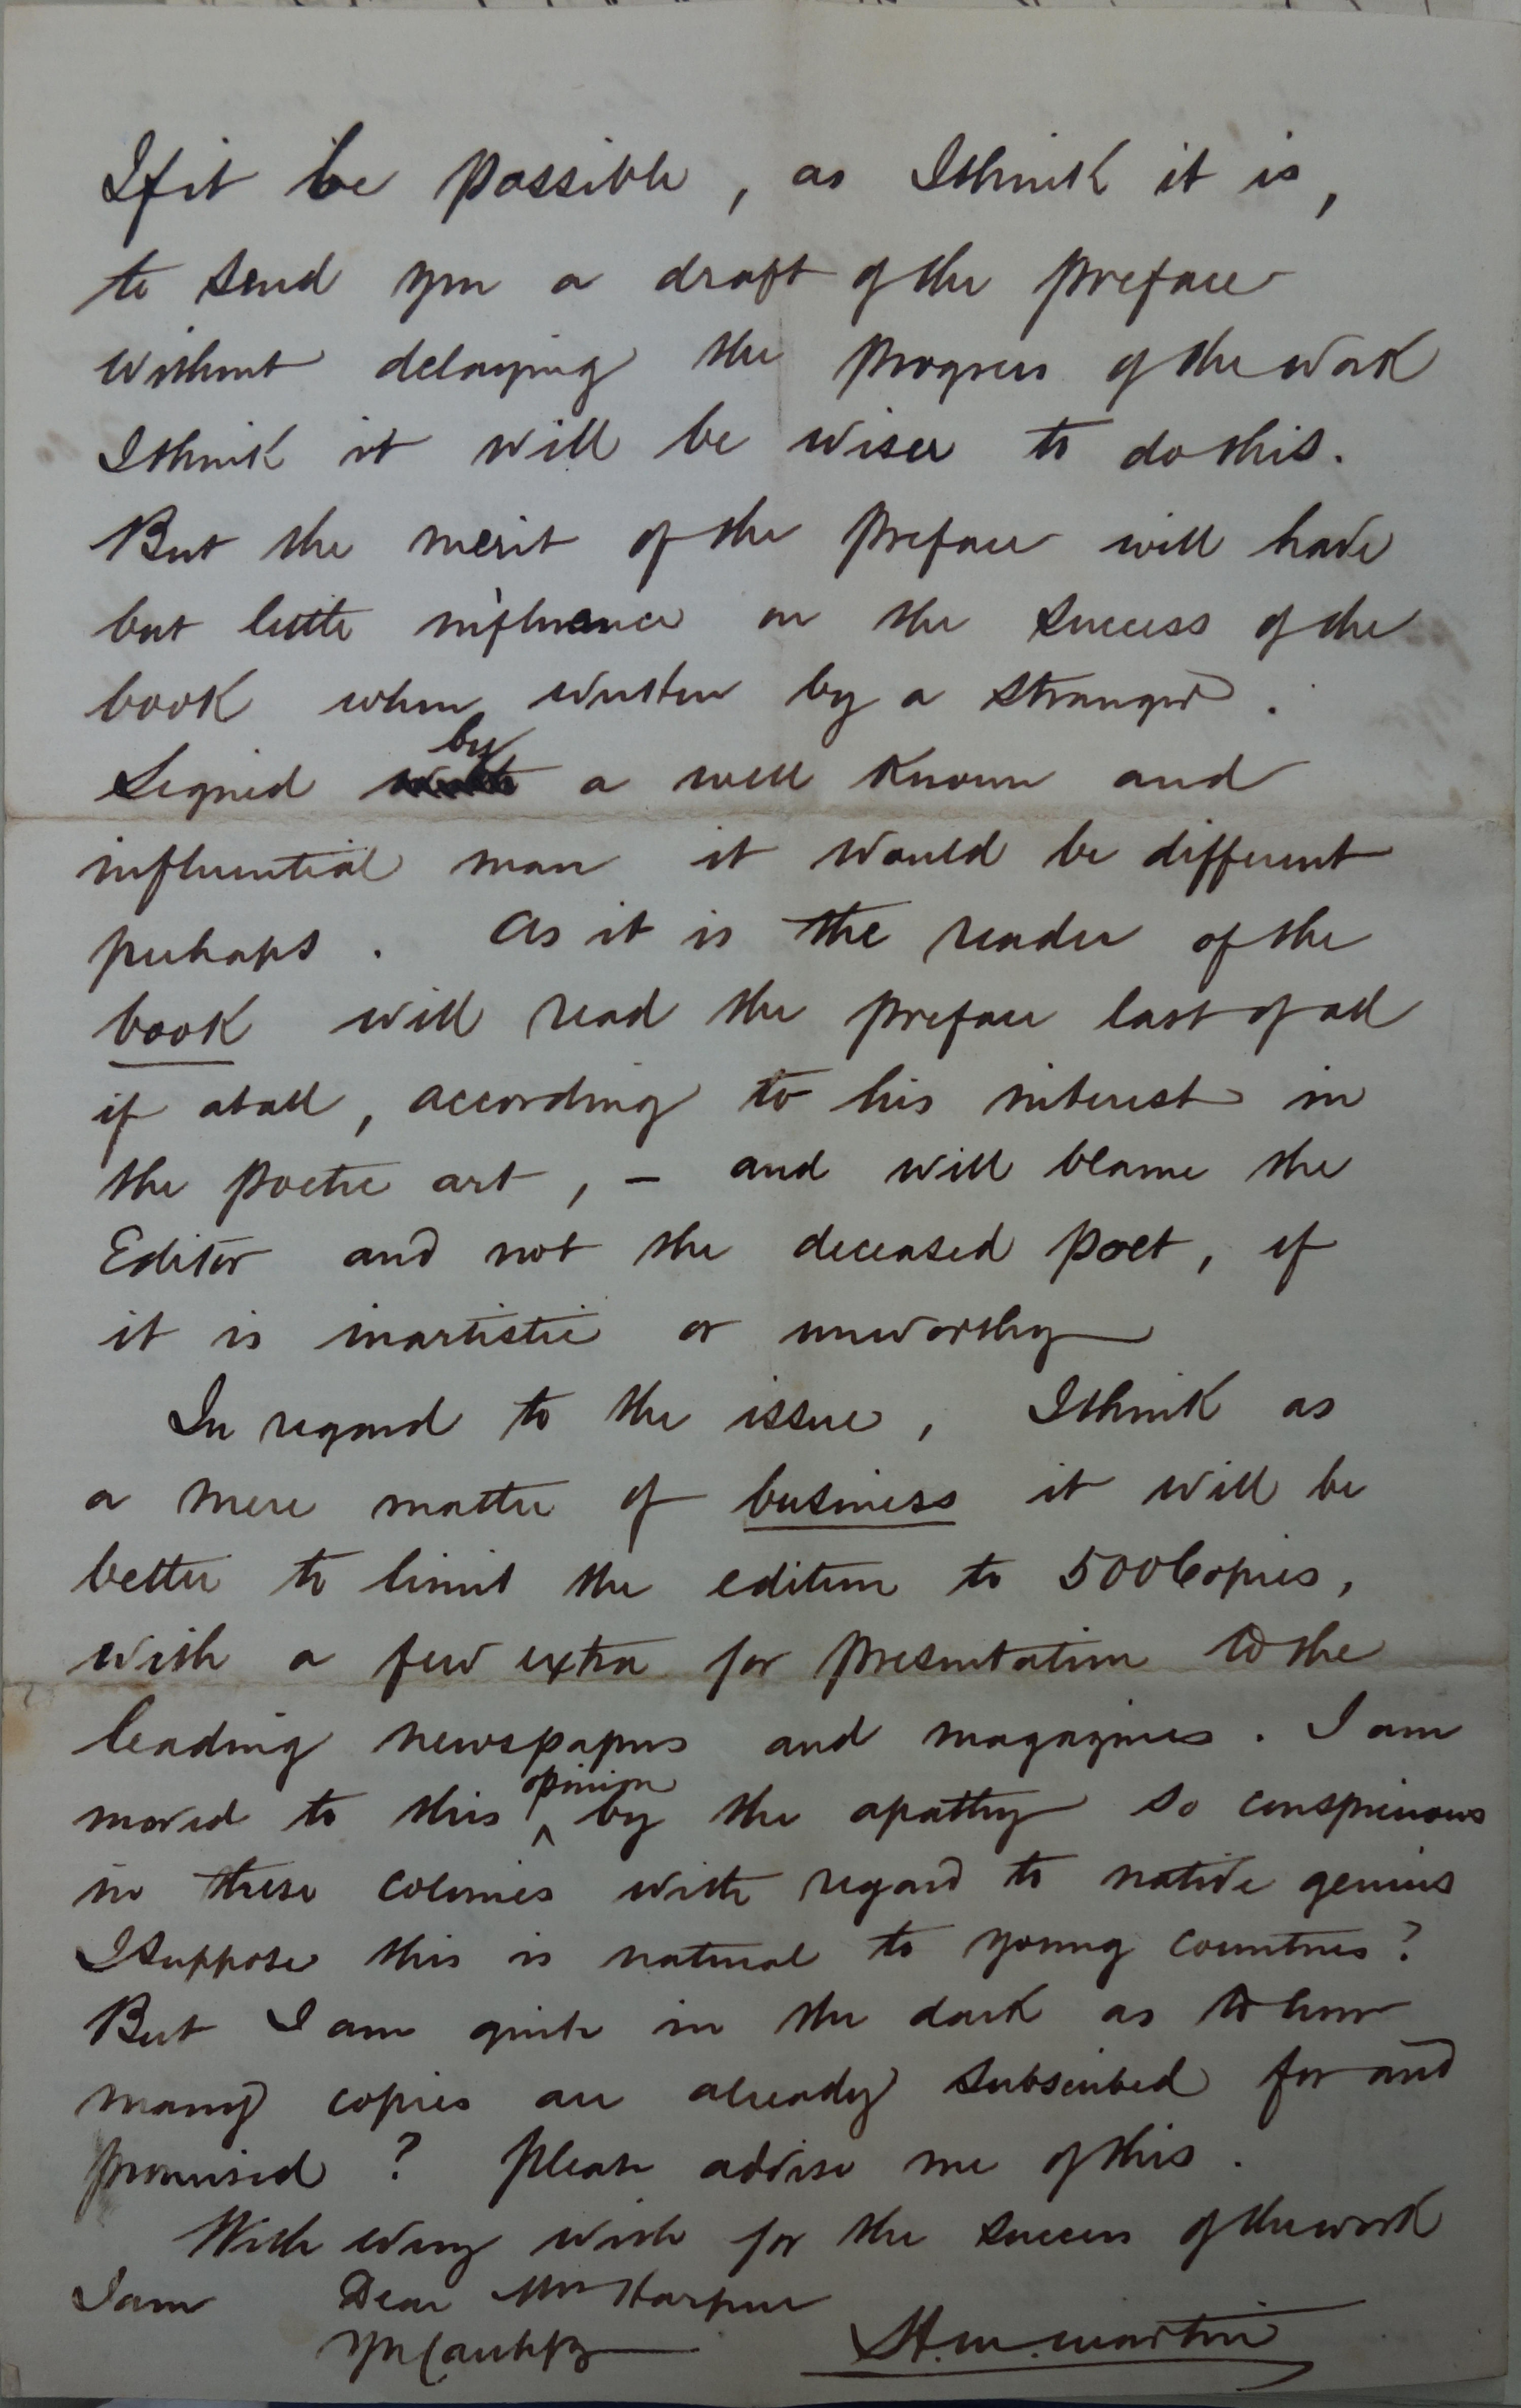 If it be possible, as I think it is,
to send you a draft of the preface
without delaying the progress of the work
I think it will be wiser to do this.
But the merit of the preface will have
but little influence on the success of the
book when written by a stranger.
Signed by a well known and
influential man it would be different
perhaps. As it is the reader of the
book will read the preface last of all
if at all, according to his interest in
the poetic art, – and will blame the
Editor and not the deceased poet, if
it is inartistic or unworthy
In regard to the issue, I think as
a mere matter of business it will be
better to limit the edition to 500 Copies,
with a few extra for presentation to the
leading newspapers and magazines. I am
moved to this opinion by the apathy so conspicuous
in these colonies with regard to native genius
I suppose this is natural to young countries?
But I am quite in the dark as to how
many copies are already subscribed for and
promised? Please advise me of this.
With every wish for the success of the work
I am Dear Mrs Harpur
H.M. Martin